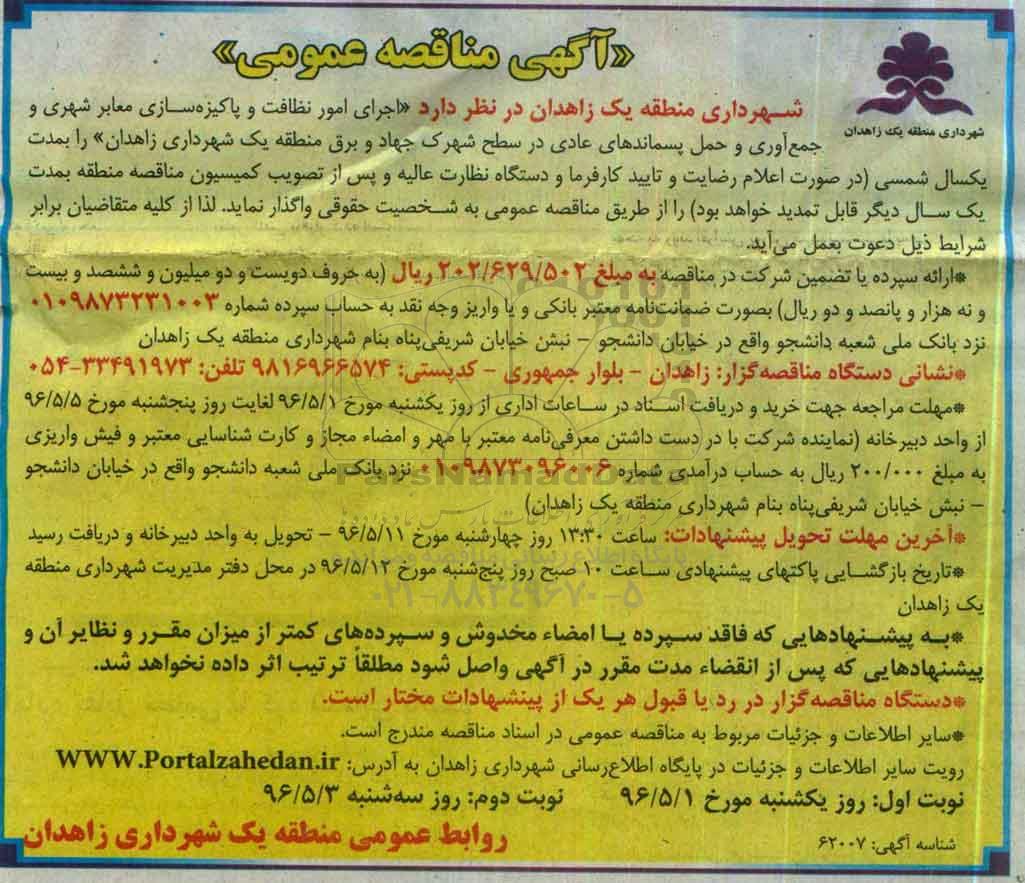 «آگهی مناقصه عمومی»
شهرداری منطقه یک زاهدان
شهرداری منطقه یک زاهدان در نظر دارد «اجرای امور نظافت و پاکیزه‌سازی معابر شهری و
جمع‌آوری و حمل پسماندهای عادی در سطح شهرک جهاد و برق منطقه یک شهرداری زاهدان» را بمدت
یکسال شمسی (در صورت اعلام رضایت و تایید کارفرما و دستگاه نظارت عالیه و پس از تصویب کمیسیون مناقصه منطقه بمدت
یک سال دیگر قابل تمدید خواهد بود) را از طریق مناقصه عمومی به شخصیت حقوقی واگذار نماید. لذا از کلیه متقاضیان برابر
شرایط ذیل دعوت بعمل می‌آید.
*ارائه سپرده یا تضمین شرکت در مناقصه به مبلغ ۲۰۲/۶۲۹/۵۰۲ ریال (به حروف دویست و دو میلیون و ششصد و بیست
و نه هزار و پانصد و دو ریال) بصورت ضمانت‌نامه معتبر بانکی و یا واریز وجه نقد به حساب سپرده شماره ۰۱۰۹۸۷۳۲۳۱۰۰۳
نزد بانک ملی شعبه دانشجو واقع در خیابان دانشجو – نبش خیابان شریفی‌پناه بنام شهرداری منطقه یک زاهدان
*نشانی دستگاه مناقصه‌گزار: زاهدان – بلوار جمهوری – کدپستی: ۹۸۱۶۹۶۶۵۷۴ تلفن: ۳۳۴۹۱۹۷۳-۰۵۴
*مهلت مراجعه جهت خرید و دریافت اسناد در ساعات اداری از روز یکشنبه مورخ ۹۶/۵/۱ لغایت روز پنجشنبه مورخ ۹۶/۵/۵
از واحد دبیرخانه (نماینده شرکت با در دست داشتن معرفی‌نامه معتبر با مهر و امضاء مجاز و کارت شناسایی معتبر و فیش واریزی
به مبلغ ۲۰۰/۰۰۰ ریال به حساب درآمدی شماره ۰۱۰۹۸۷۳۰۹۶۰۰۶ نزد بانک ملی شعبه دانشجو واقع در خیابان دانشجو
– نبش خیابان شریفی‌پناه بنام شهرداری منطقه یک زاهدان)
*آخرین مهلت تحویل پیشنهادات: ساعت ۱۳:۳۰ روز چهارشنبه مورخ ۹۶/۵/۱۱ – تحویل به واحد دبیرخانه و دریافت رسید
*تاریخ بازگشایی پاکتهای پیشنهادی ساعت ۱۰ صبح روز پنج‌شنبه مورخ ۹۶/۵/۱۲ در محل دفتر مدیریت شهرداری منطقه
یک زاهدان
*به پیشنهادهایی که فاقد سپرده یا امضاء مخدوش و سپرده‌های کمتر از میزان مقرر و نظایر آن و
پیشنهادهایی که پس از انقضاء مدت مقرر در آگهی واصل شود مطلقاً ترتیب اثر داده نخواهد شد.
*دستگاه مناقصه‌گزار در رد یا قبول هر یک از پینشهادات مختار است.
*سایر اطلاعات و جزئیات مربوط به مناقصه عمومی در اسناد مناقصه مندرج است.
رویت سایر اطلاعات و جزئیات در پایگاه اطلاع‌رسانی شهرداری زاهدان به آدرس: WWW.Portalzahedan.ir
نوبت اول: روز یکشنبه مورخ ۹۶/۵/۱ نوبت دوم: روز سه‌شنبه ۹۶/۵/۳
شناسه آگهی: ۶۲۰۰۷
روابط عمومی منطقه یک شهرداری زاهدان
ParsNamadData
پایگاه اطلاع رسانی مناقصه و مزایده
۰۲۱-۸۸۳۴۹۶۷۰-۵